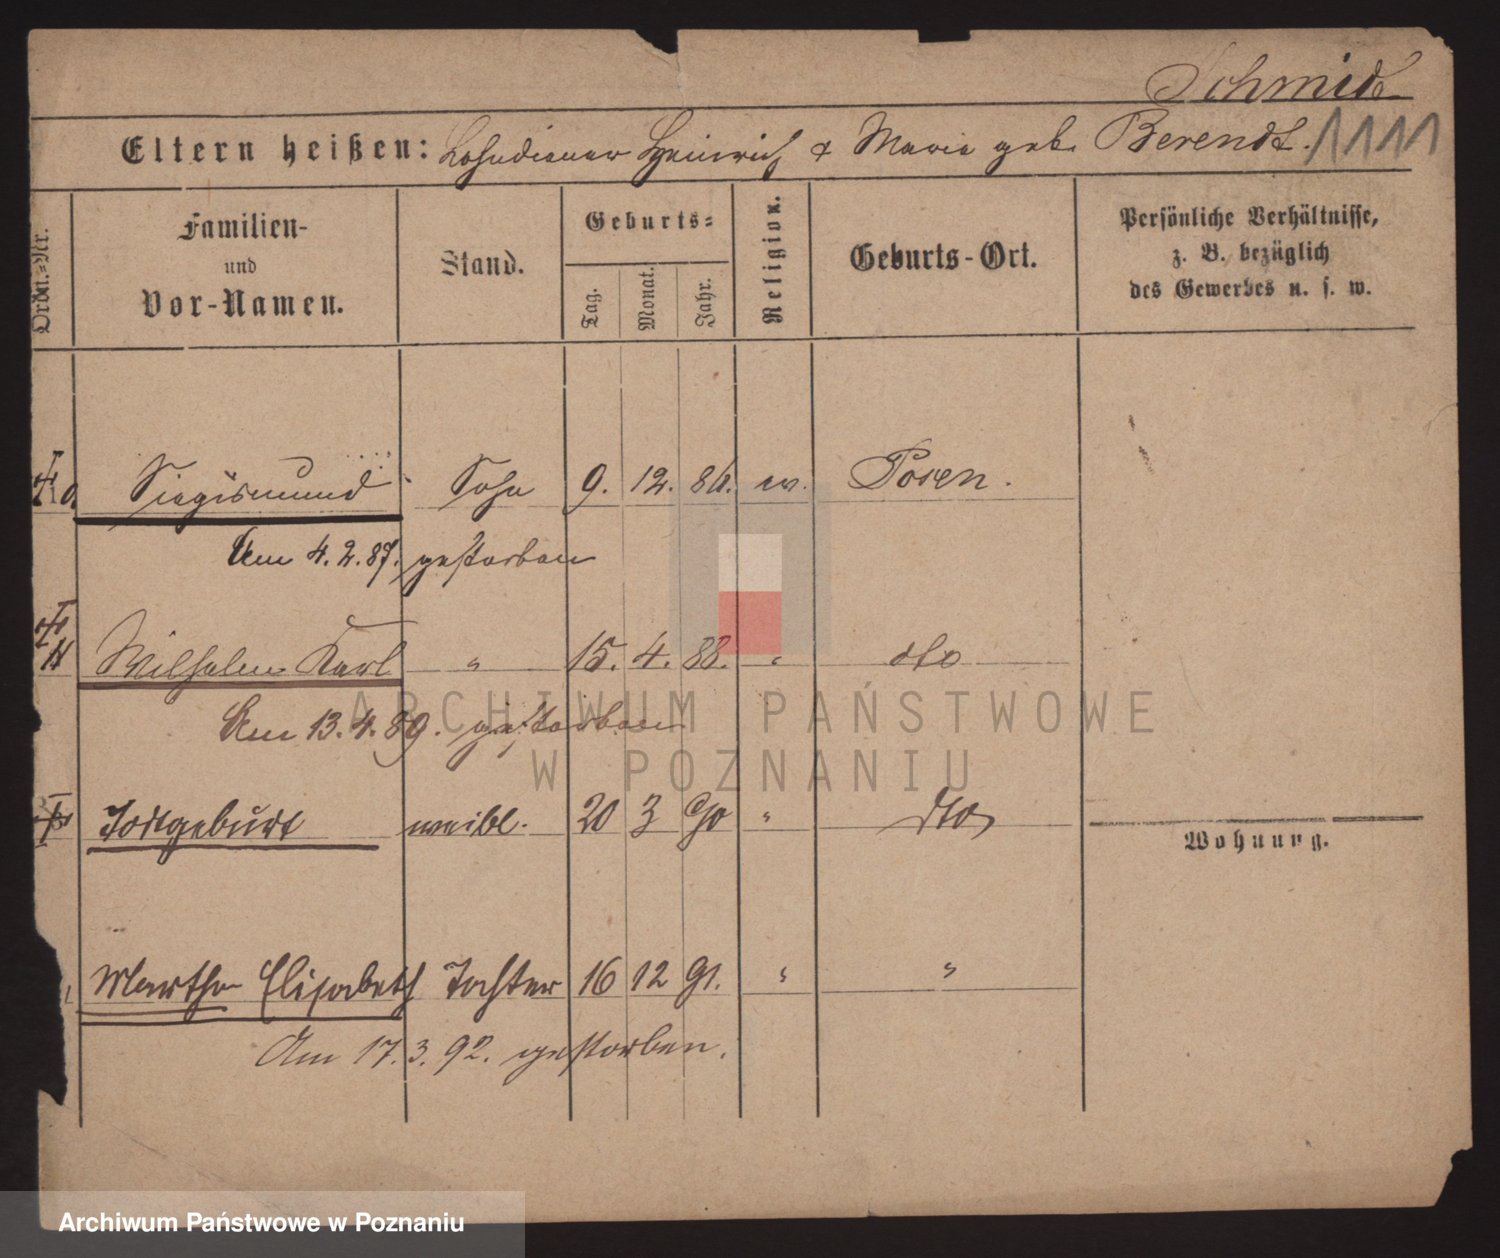 Schmidt
Eltern heißen: Lohndiener Heinrich & Maria geb. Berendt.
Ordn.=Nr.
Familien-
und
Vor-Namen.
Stand.
Geburts=
Tag.
Monat.
Jahr.
Religion.
Geburts-Ort.
Persönliche Verhältnisse,
z. B. bezüglich
des Gewerbes u. s. w.
10. Siegismund Sohn 9. 12. 86. ev. Posen.
Am 4.2.87. gestorben
11 Wilhelm Karl " 15. 4. 88. " dto
Am 13.4.89. gestorben
Todtgeburt weibl. 20 3 90 " dto
Wohnung.
Martha Elisabeth Tochter 16 12 91. " "
Am 17.3.92. gestorben.
ARCHIWUM PAŃSTWOWE
W POZNANIU
Archiwum Państwowe w Poznaniu